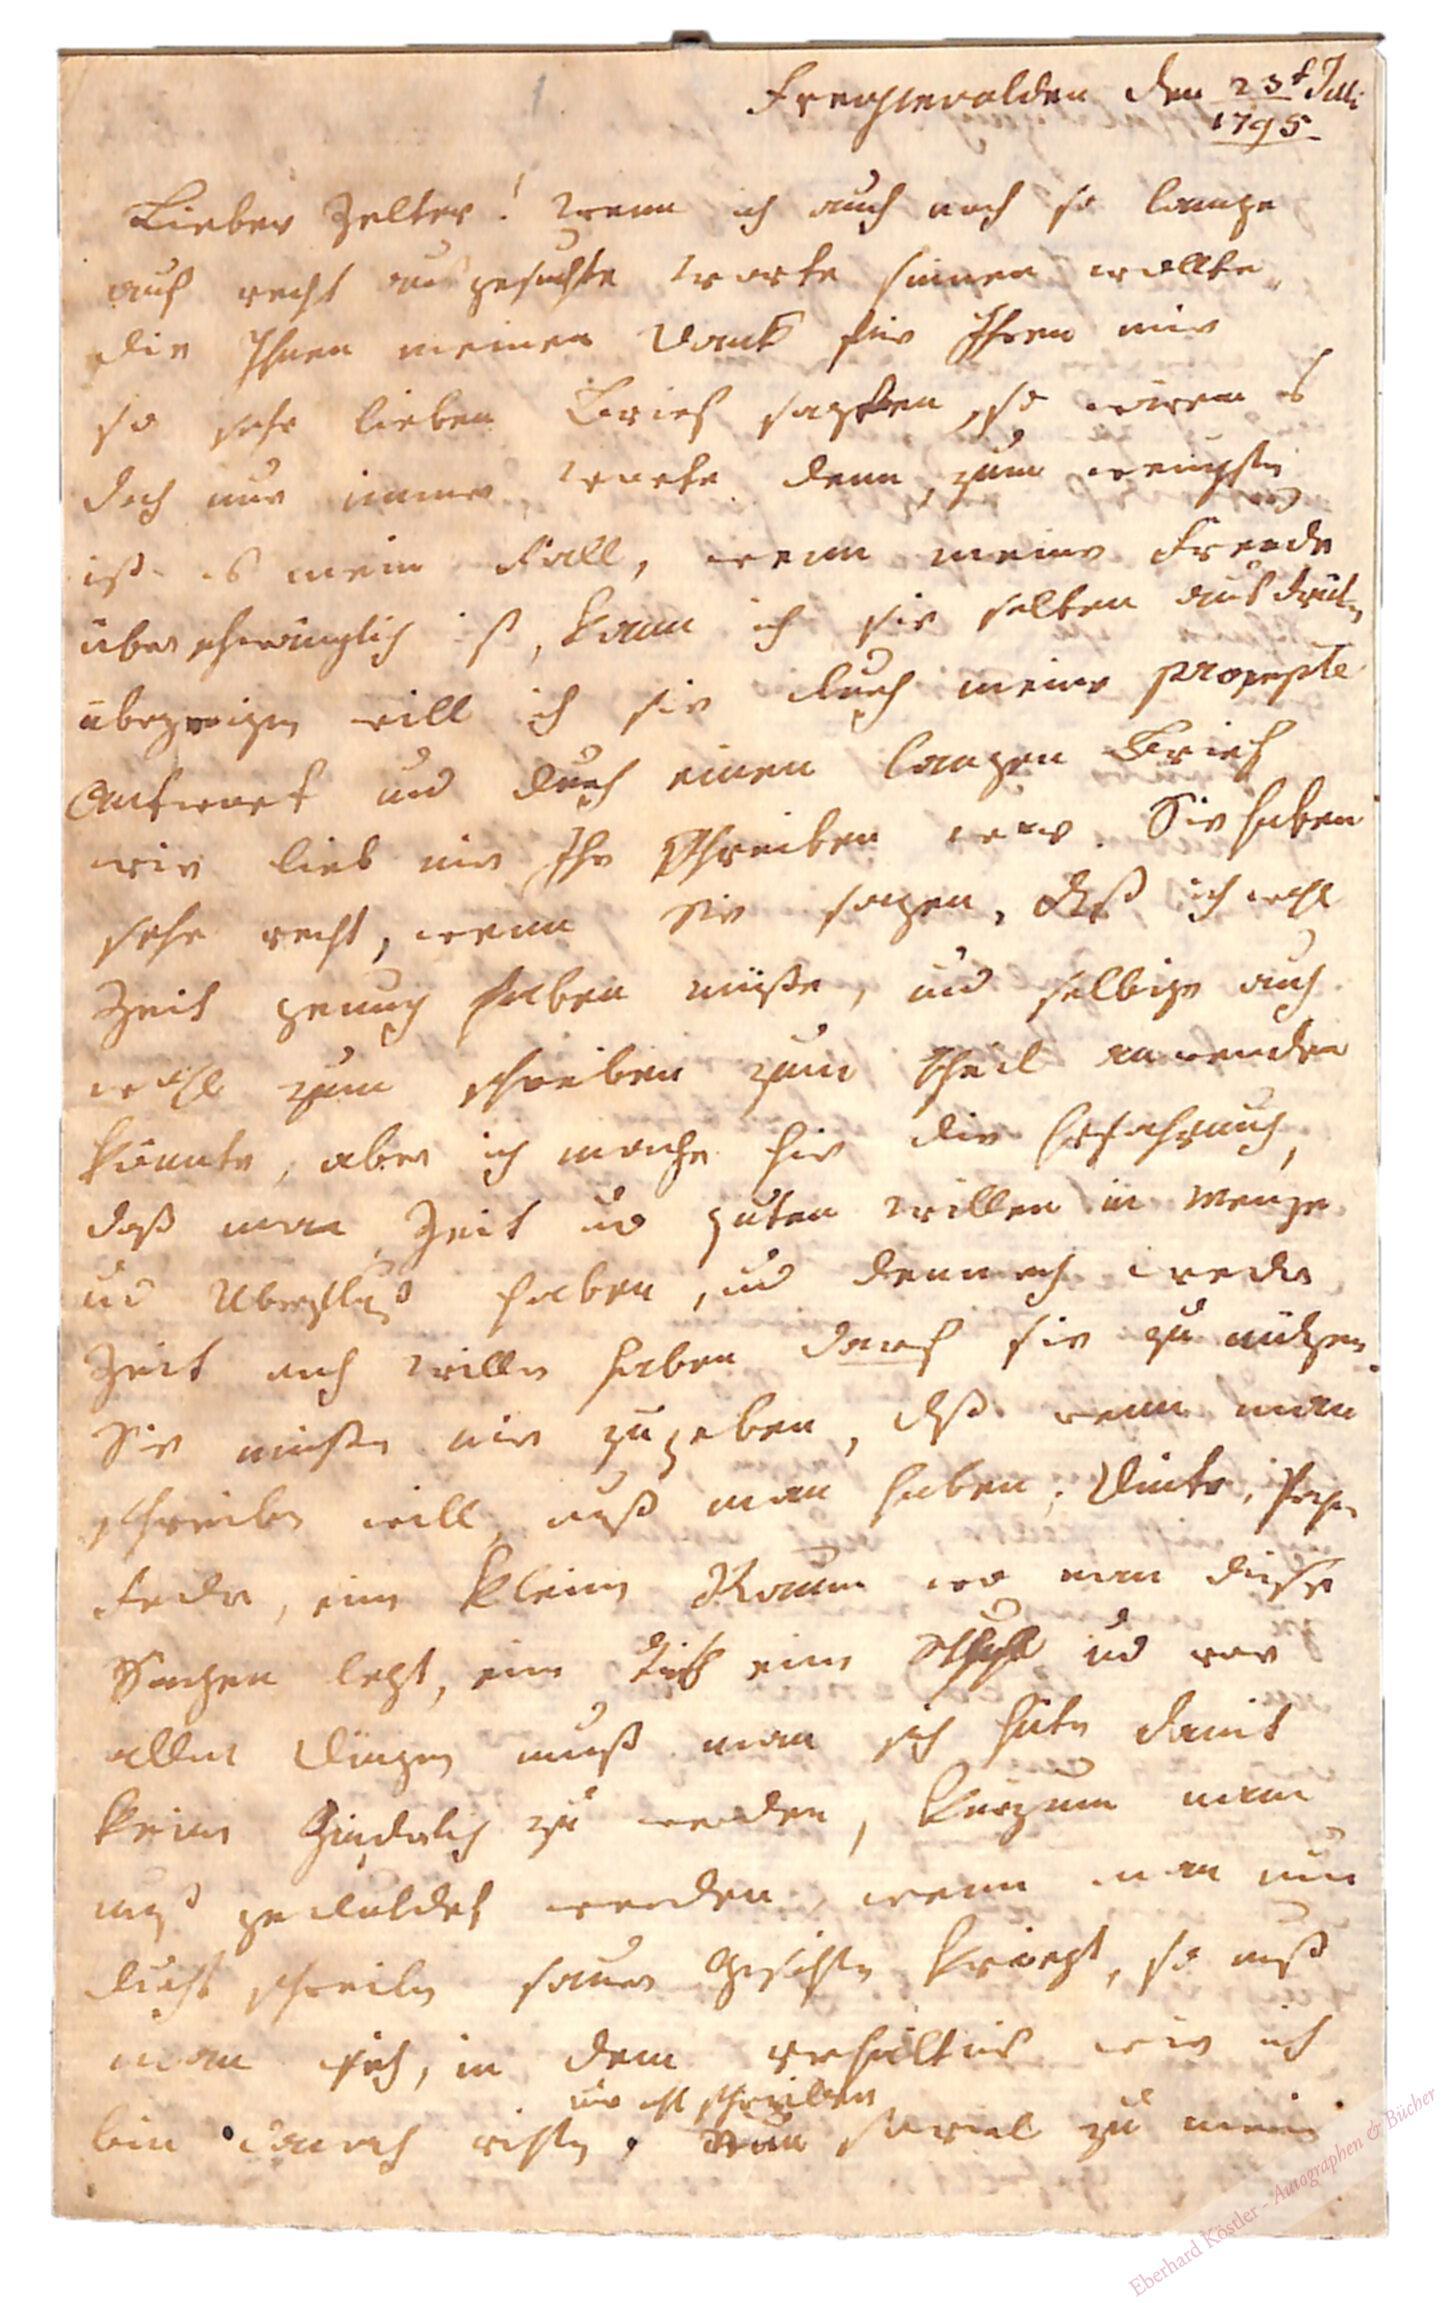 Freyenwalden den 23t Julli
1795
Lieber Zelter! Wenn ich auch noch so lange
auf recht ausgesuchte Worte sinnen wollte,
die Ihnen meinen Danck für Ihren mir
so sehr lieben Brief sagten, so wären es
doch nur immer Worte denn, zum wenigsten
ist es mein Fall, wenn meine Freude
überschwänglich ist, kann ich sie selten ausdrüken
überzeigen will ich sie durch meine prompte
Antwort und durch einen langen Brief
wie lieb mir Ihr Schreiben war. Sie haben
sehr recht, wenn Sie sagen, daß ich wohl
Zeit genung haben müße, und selbige auch
wohl zum schreiben zum Theil anwenden
könnte, aber ich mache hir die Erfahrung,
daß man Zeit und guten Willen in Menge
und Uberfluß haben, und dennoch weder
Zeit noch Willen haben darf sie zu nützen.
Sie müßen mir zugeben, daß wenn man
schreiben will, muß man haben; Dinte, Papier
Feder, ein kleinen Raum wo man diese
Sachen legt, ein Tisch ein Stuhl und vor
allen Dingen muß man sich hüten damit
keinen hinderlich zu werden, kurzum man
muß geduldet werden, wenn man nun
durchs schreiben saure Gesichter kriegt, so muß
man sich, in dem verhältnis wie ich
bin darnach richten, nun soviel zu mein
nicht schreiben
Eberhard Köstler - Autographen & Bücher